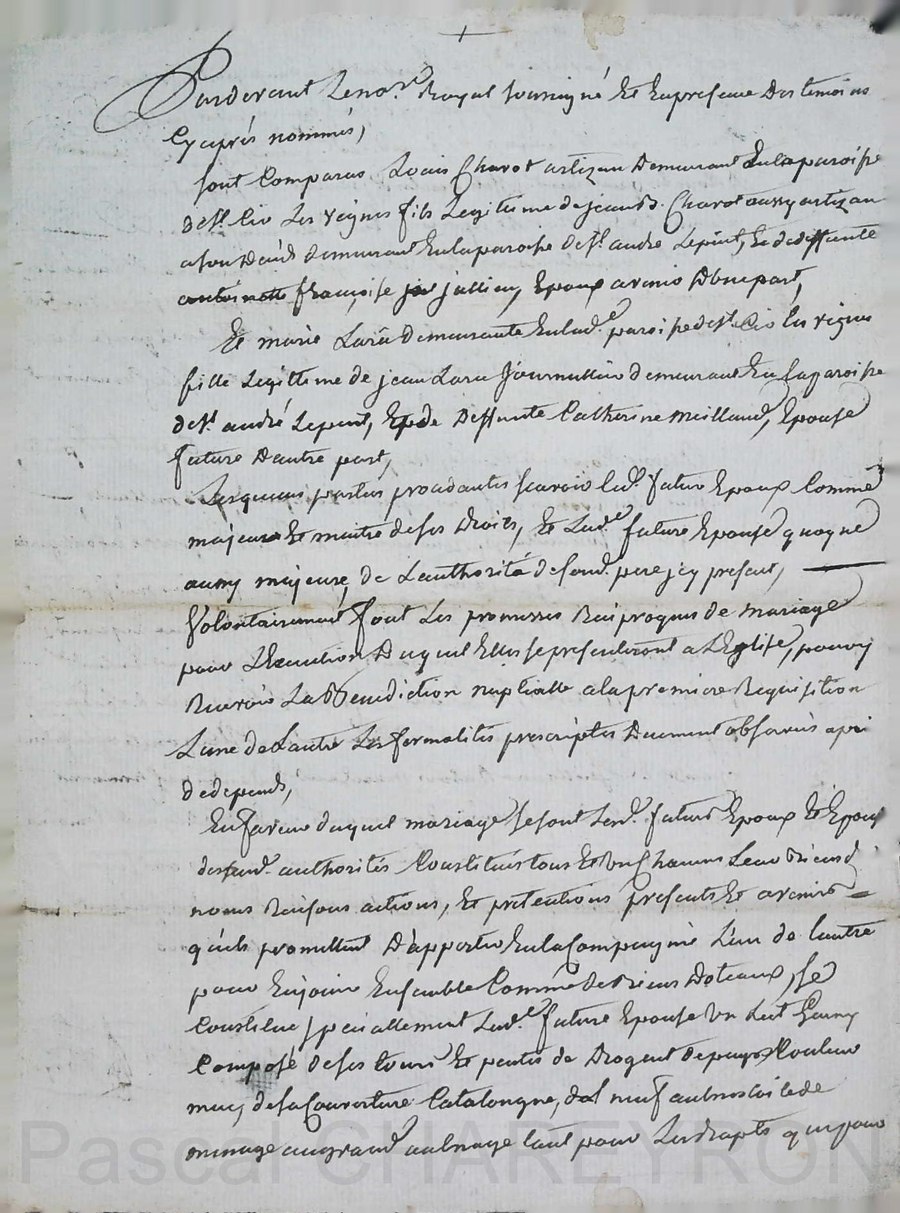 Pardevant Le no.re Royal soussigné Et Enpresence Des temoins
Cyaprés nommés,
sont Comparus Louis Charot artizan Demeurant Enlaparoisse
de st. Cir Les vignes fils Legitime de jean Charot aussy artizan
demeurant Enlaparoisse de st. andré Lepuit, Et dedeffunte
francoise jullien, Epoux avenir D'unepart,
Et marie Lara demeurante Enlad.e paroisse de st. Cir les vignes
fille Legitteme de jean Lara journallier demeurant En laparoisse
de st. andré Lepuit, Et de Deffunte Catherine meilland, Epouse
future D'autre part,
Lesquelles parties procedantes scavoir led. futur Epoux Comme
majeur Et maitre deses Droits, Et Lad.e future Epouse quoyque
aussy majeure, de L'authorité de sond. pere jcy present,
Volontairement font Les promesses Reciproques de mariage
pour L'Execution Duquel Elles se presenteront a L'Eglise, pour y
Recevoir La Benediction nuptialle alapremiere Requisition
L'une de L'autre Les formalités prescriptes Duement observées a peine
de depends,
En faveur duquel mariage se sont Lesd. futurs Epoux Et Epouse
authorités Constitués tous Et Un Chacuns Leurs Biens d.
noms Raisons actions, Et pretentions presents Et avenirs
qu'ils promettent D'apporter Enla Compagnie L'un de L'autre
pour En jouir Ensemble Comme de Biens Doteaux, se
Constitue specialement Lad.e future Epouse Un Lict Garny
Composé deses tours Et pentes de Drogent depays Couleur
, desa Couverture Catalongne, de neuf aulnes toile de
menage augrand aulnage tant pour Lesdrapts que pour
Pascal CHAREYRON